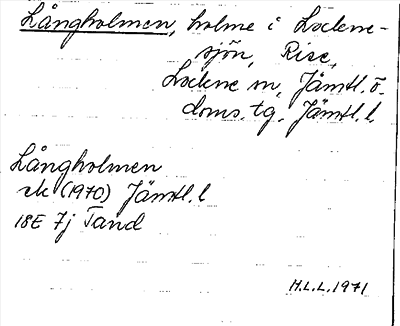 Långholmen, holme i Lockne-
sjön, Rise,
Lockne sn, Jämtl. ö.
doms. tg. Jämtl. l.
Långholmen
ek (1970) Jämtl. l
18E 7j Tand
H.L.L. 1971